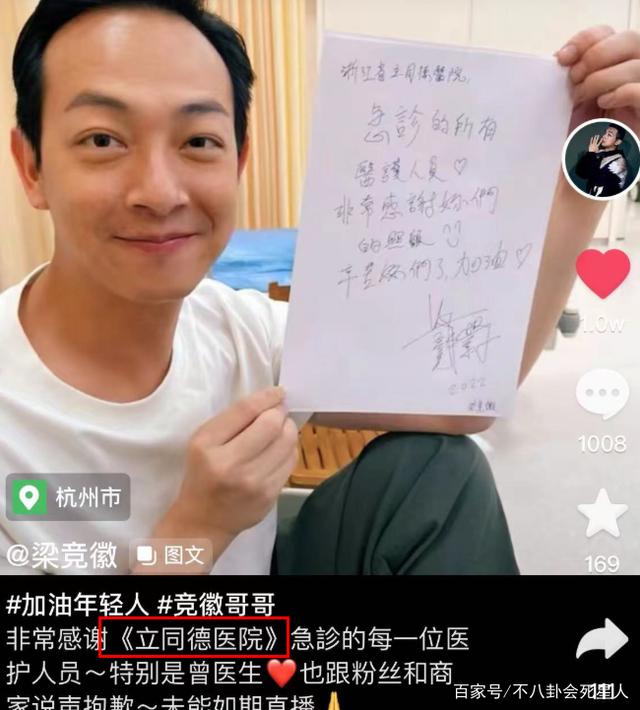 浙江省立同德醫院,
急診的所有
醫護人員♡
非常感謝妳們
的照顧
辛苦妳們了,加油♡
2022
梁竞徽
1.0w
1008
169
杭州市
@梁竞徽 图文
#加油年轻人 #竞徽哥哥
非常感谢《立同德医院》急診的每一位医
护人员～特别是曾医生❤️也跟粉丝和商
家说声抱歉～未能如期直播🙏
百家号/不八卦会死星人